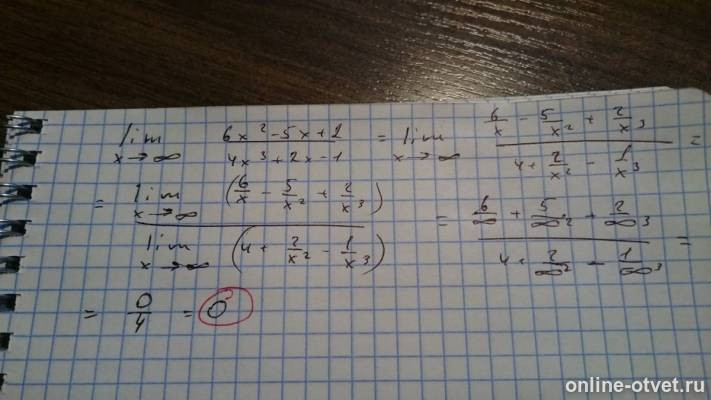 lim x→∞ (6x² - 5x + 2)/(4x³ + 2x - 1) = lim x→∞ (6/x - 5/x² + 2/x³)/(4 + 2/x² - 1/x³) =
= lim x→∞ (6/x - 5/x² + 2/x³) / lim x→∞ (4 + 2/x² - 1/x³) = (6/∞ + 5/∞² + 2/∞³)/(4 + 2/∞² - 1/∞³) =
= 0/4 = 0
online-otvet.ru